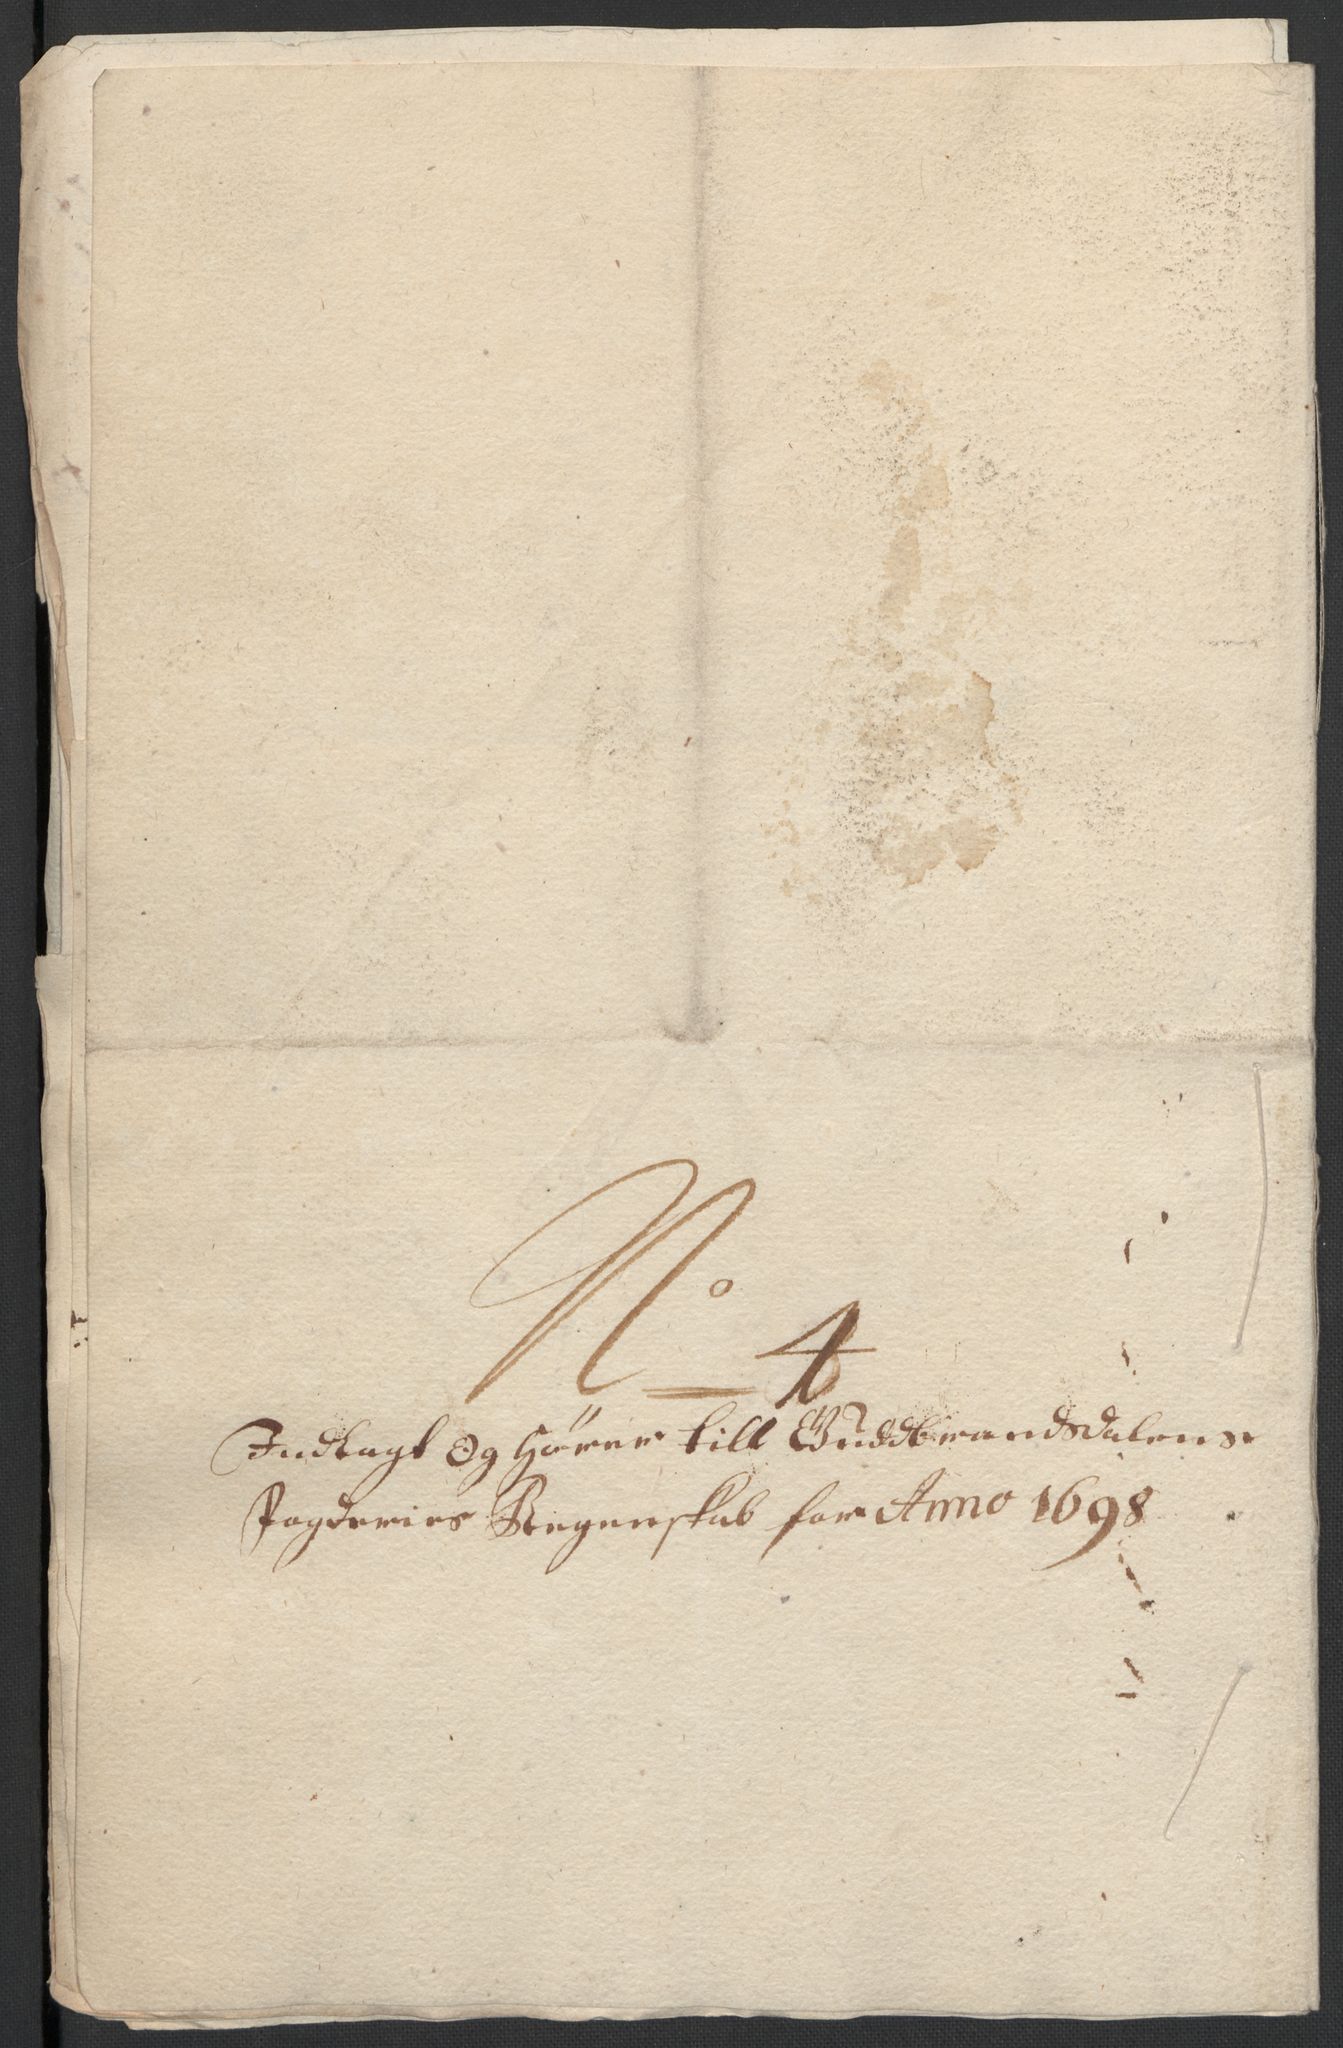 No 4
Indlagt Og Hører till Guddbrandsdalens
Fogderies Regenskab for Anno 1698